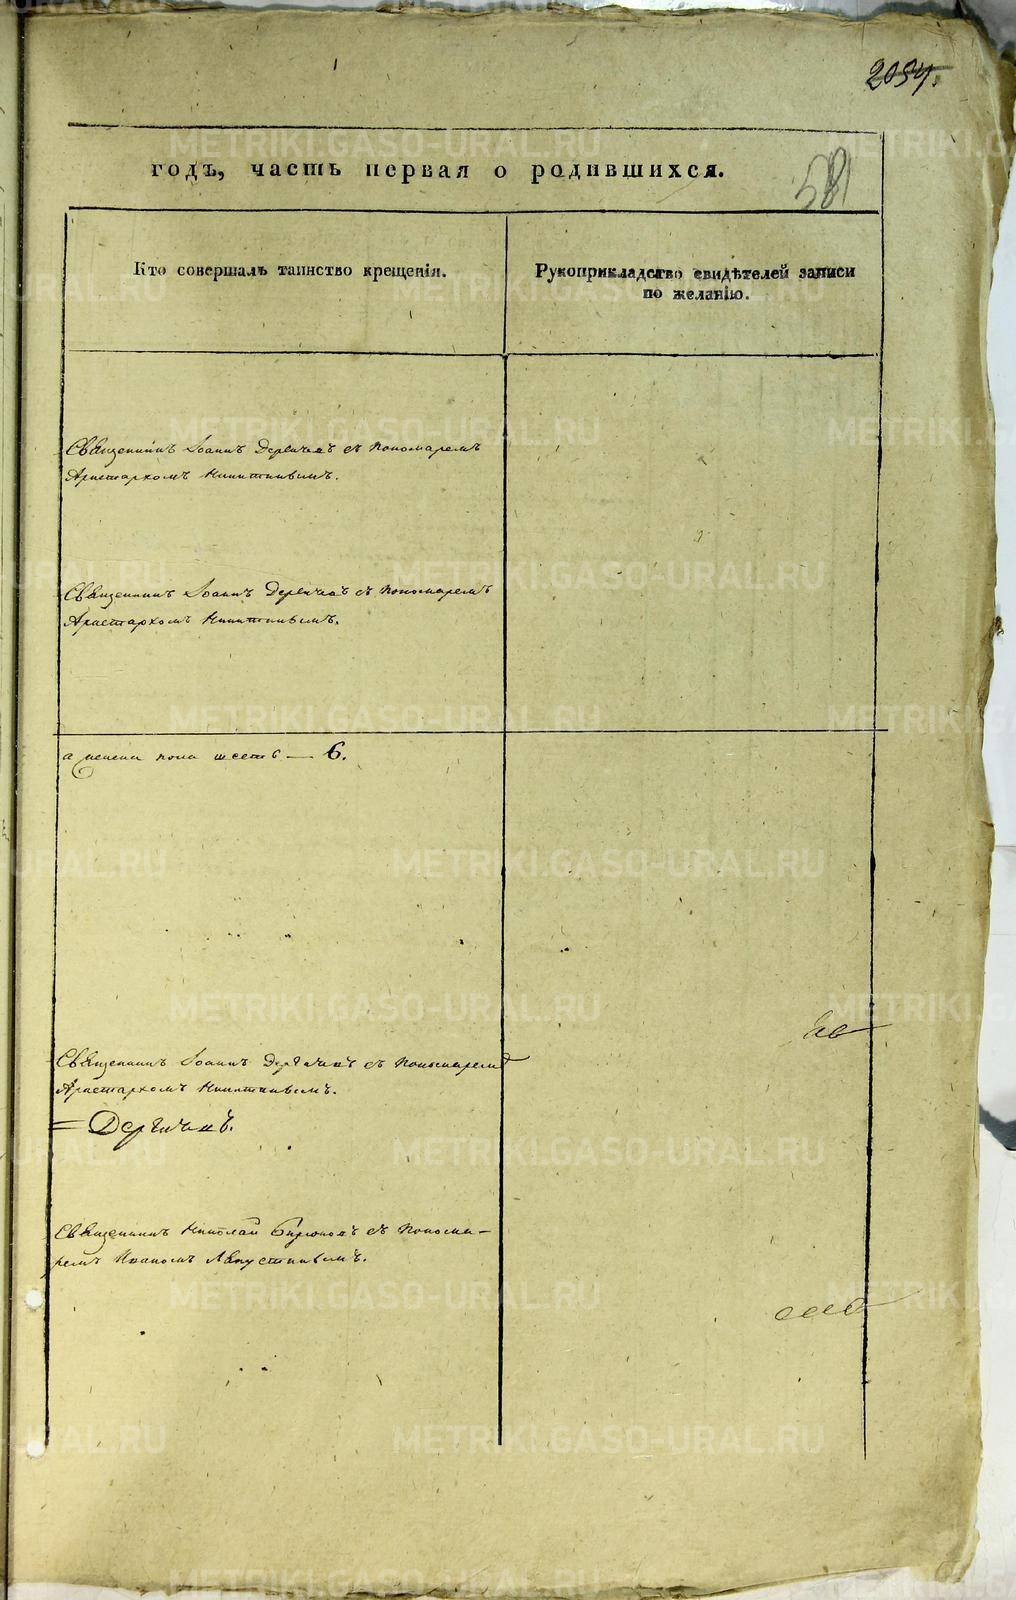 2034.
581
годъ, часть первая о родившихся.
Кто совершалъ таинство крещенія.
Рукоприкладство свидѣтелей записи
по желанію.
Священникъ Іоаннъ Дерягинъ съ пономаремъ
Аристархомъ Никитинымъ.
Священникъ Іоаннъ Дерягинъ съ пономаремъ
Аристархомъ Никитинымъ.
а женска пола шесть — 6.
Священникъ Іоаннъ Дерягинъ съ пономаремъ
Аристархомъ Никитинымъ.
= Дерягинъ.
Священникъ Николай Бирюковъ съ понома-
ремъ Иваномъ
METRIKI.GASO-URAL.RU